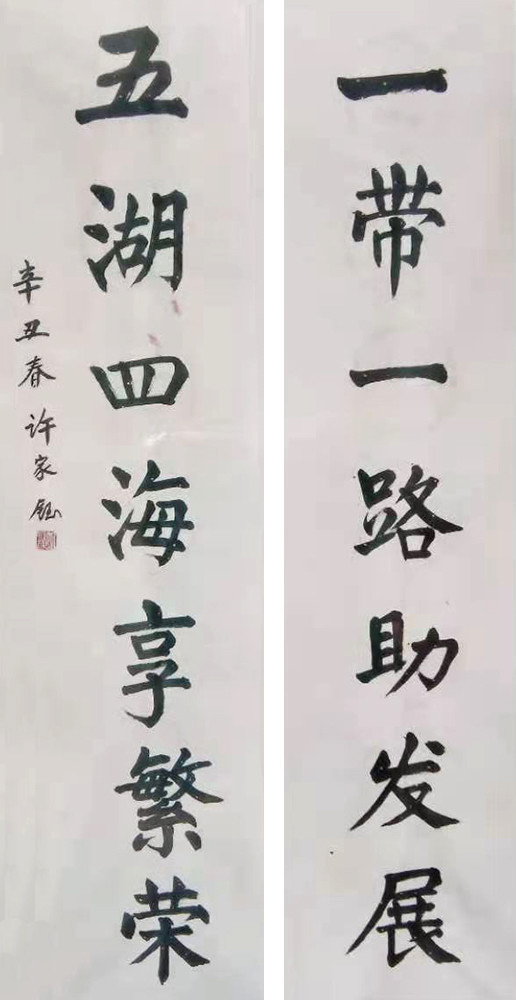 一带一路助发展
五湖四海享繁荣
辛丑春 许家钰